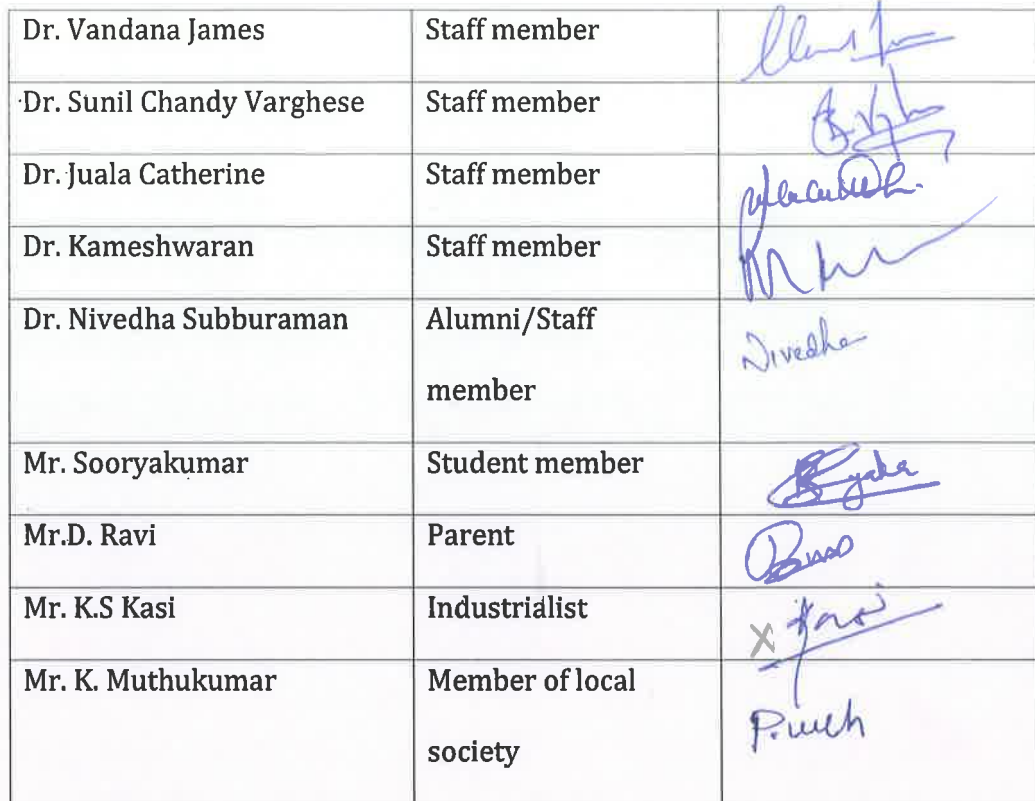 Dr. Vandana James Staff member
Dr. Sunil Chandy Varghese Staff member
Dr. Juala Catherine Staff member
Dr. Kameshwaran Staff member
Dr. Nivedha Subburaman Alumni/Staff Nivedha
member
Mr. Sooryakumar Student member
Mr.D. Ravi Parent
Mr. K.S Kasi Industrialist X
Mr. K. Muthukumar Member of local
society